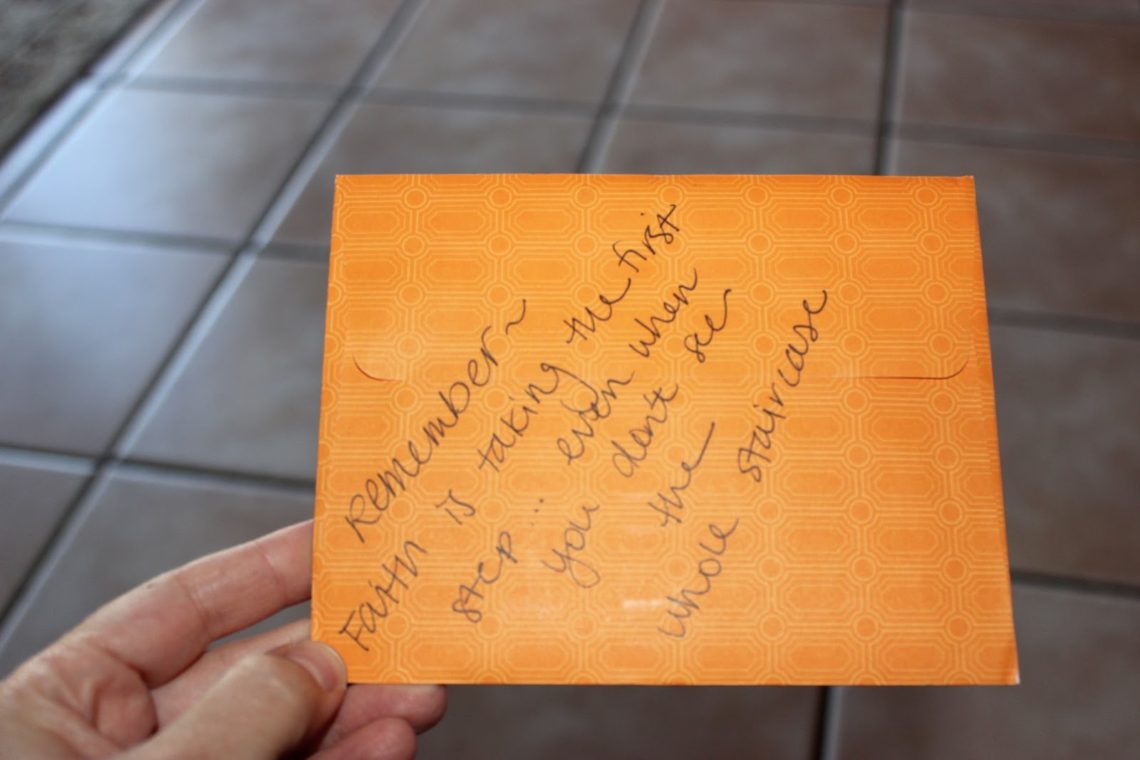 Remember~
Faith is taking the first
step... even when
you don't see
the
whole staircase